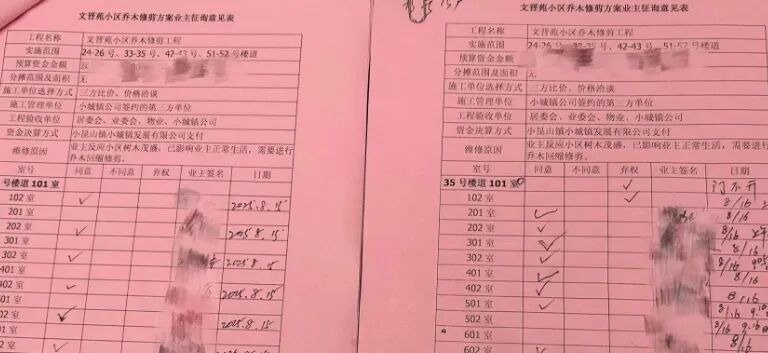 文晋苑小区乔木修剪方案业主征询意见表
工程名称 文晋苑小区乔木修剪工程
实施范围 24-26 号、33-35 号、42-43 号、51-52 号楼道
预算资金金额
分摊范围及面积 无
施工单位选择方式 三方比价、价格洽谈
施工管理单位 小城镇公司签约的第三方单位
工程验收单位 居委会、业委会、物业、小城镇公司
资金决算方式 小昆山镇小城镇发展有限公司支付
维修原因 业主反应小区树木茂盛,已影响业主正常生活,需要进行
乔木回缩修剪。
室号 同意 不同意 弃权 业主签名 日期
号楼道 101 室
102 室 ✓ 2025.8.15
201 室
202 室 ✓ 2025.8.15
301 室
302 室 ✓ 2025.8.15
401 室
402 室 ✓ 2025.8.15
501 室
02 室 ✓ 2025.8.15
01 室
02 室 ✓
文晋苑小区乔木修剪方案业主征询意见表
工程名称 文晋苑小区乔木修剪工程
实施范围 24-26 号、33-35 号、42-43 号、51-52 号楼道
预算资金金额
分摊范围及面积 无
施工单位选择方式 三方比价、价格洽谈
施工管理单位 小城镇公司签约的第三方单位
工程验收单位 居委会、业委会、物业、小城镇公司
资金决算方式 小昆山镇小城镇发展有限公司支付
维修原因 业主反应小区树木茂盛,已影响业主正常生活,需要进行
乔木回缩修剪。
室号 同意 不同意 弃权 业主签名 日期
35 号楼道 101 室 ✓ 门不开
102 室 ✓ 8/16
201 室 ✓ 8/16
202 室 ✓ 8/16
301 室 ✓ 8/16
302 室 ✓ 8/16
401 室 ✓ 8/16
402 室 ✓ 8/16
501 室 ✓ 8/16
502 室 8/16
601 室 8/16
602 室 ✓